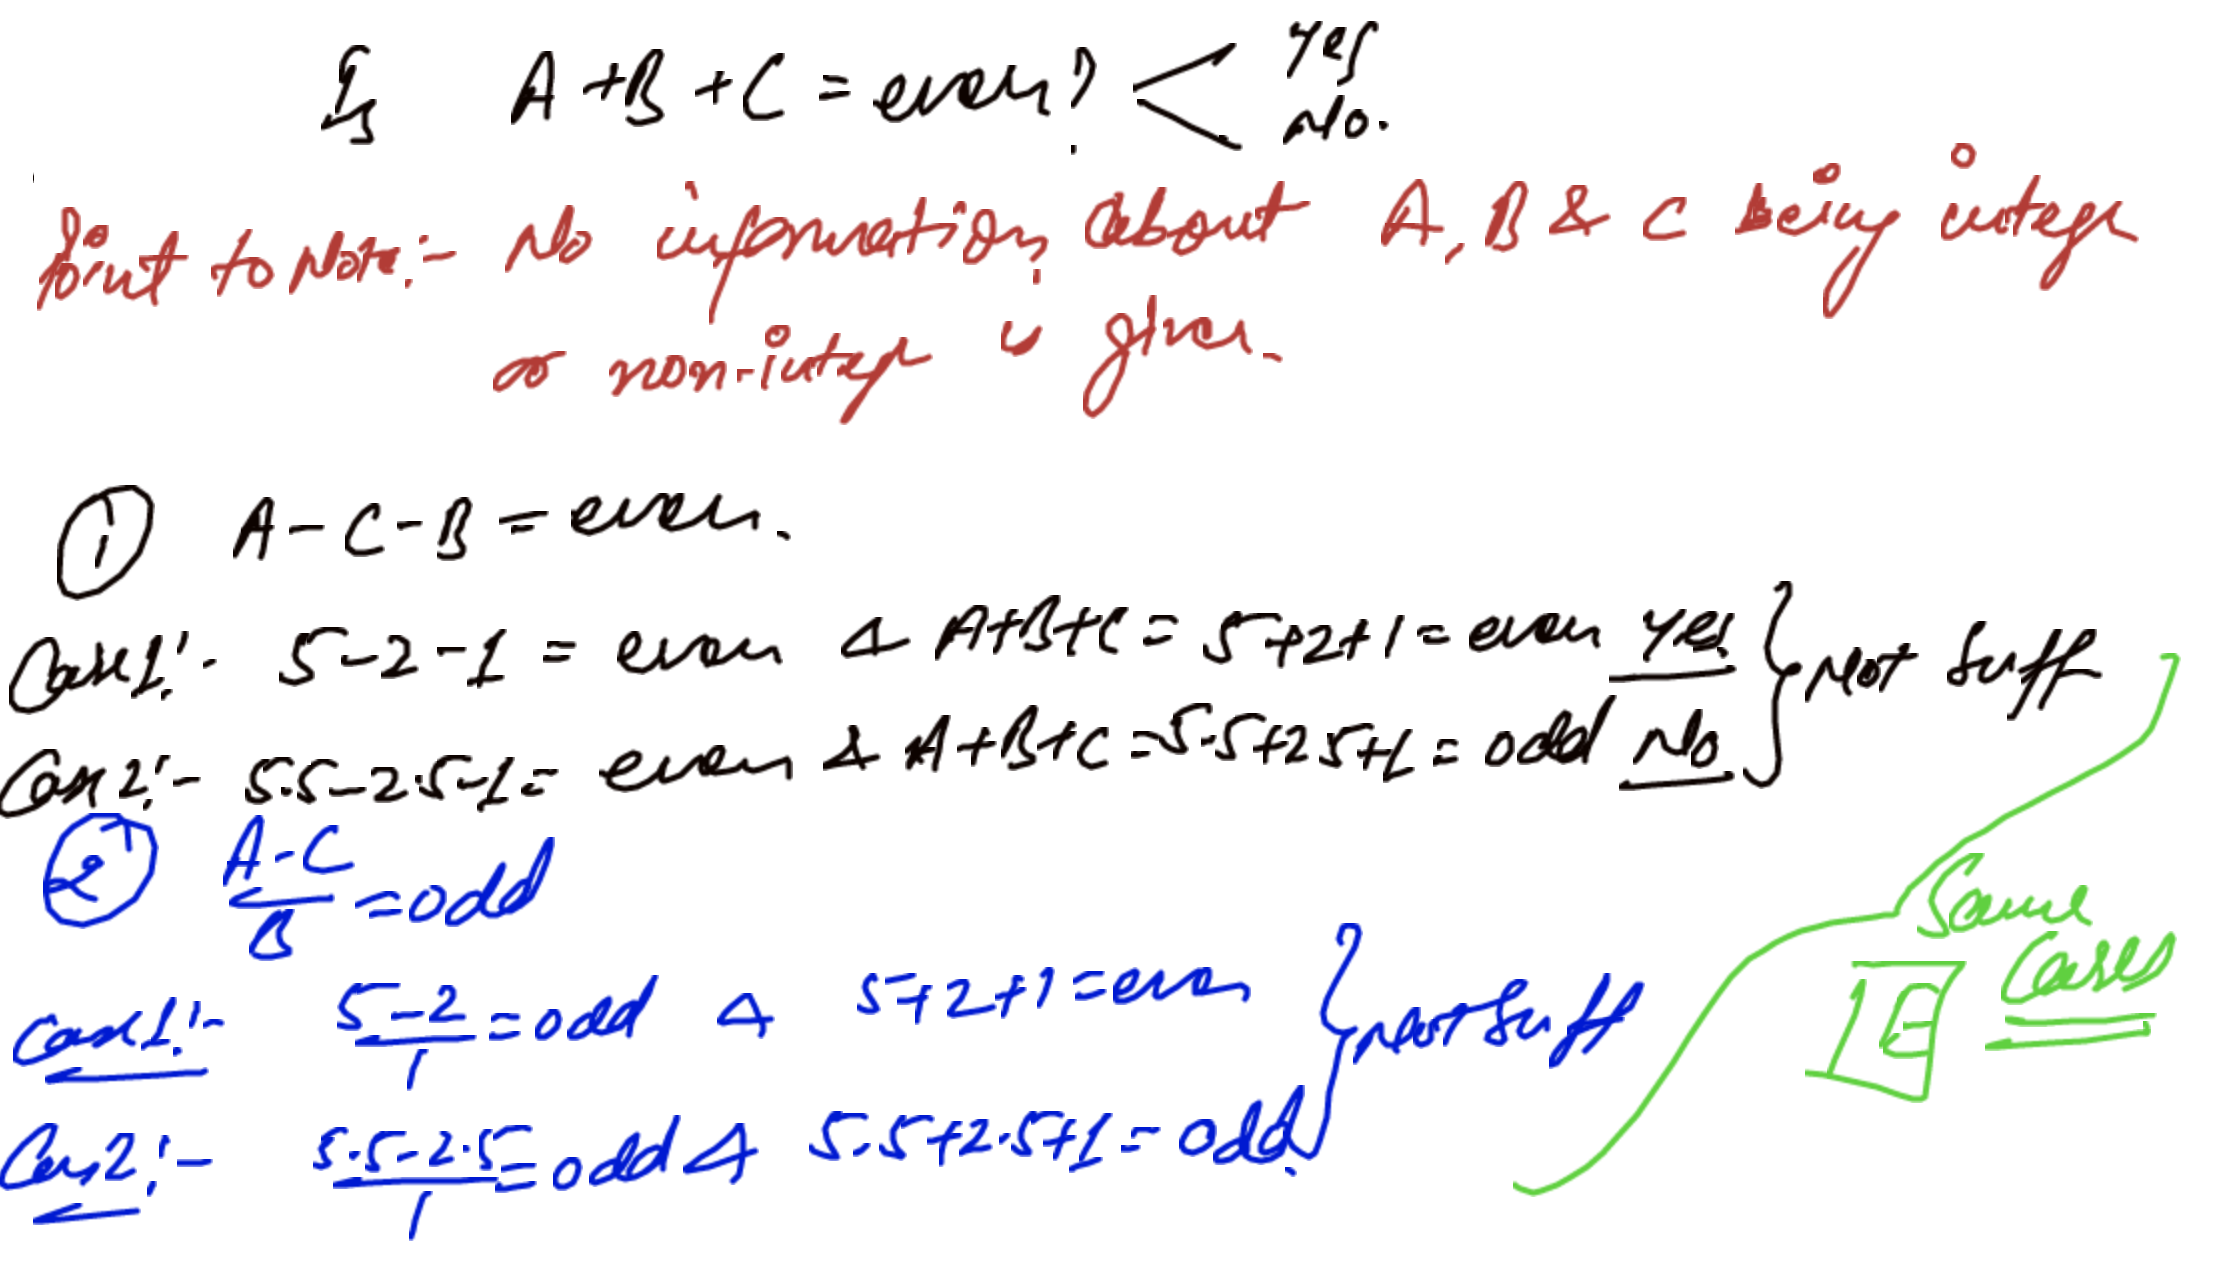 Is A+B+C = even? < Yes
No.
Point to Note:- No information about A, B & C being integer
or non-integer is given.
① A-C-B = even.
Case1:- 5-2-1 = even & A+B+C = 5+2+1 = even Yes } Not Suff
Case2:- 5.5-2.5-1 = even & A+B+C = 5.5+2.5+1 = odd No
② A-C/B = odd
Case1:- 5-2/1 = odd & 5+2+1 = even } Not Suff
Case2:- 5.5-2.5/1 = odd & 5.5+2.5+1 = odd.
Same
Cases
E